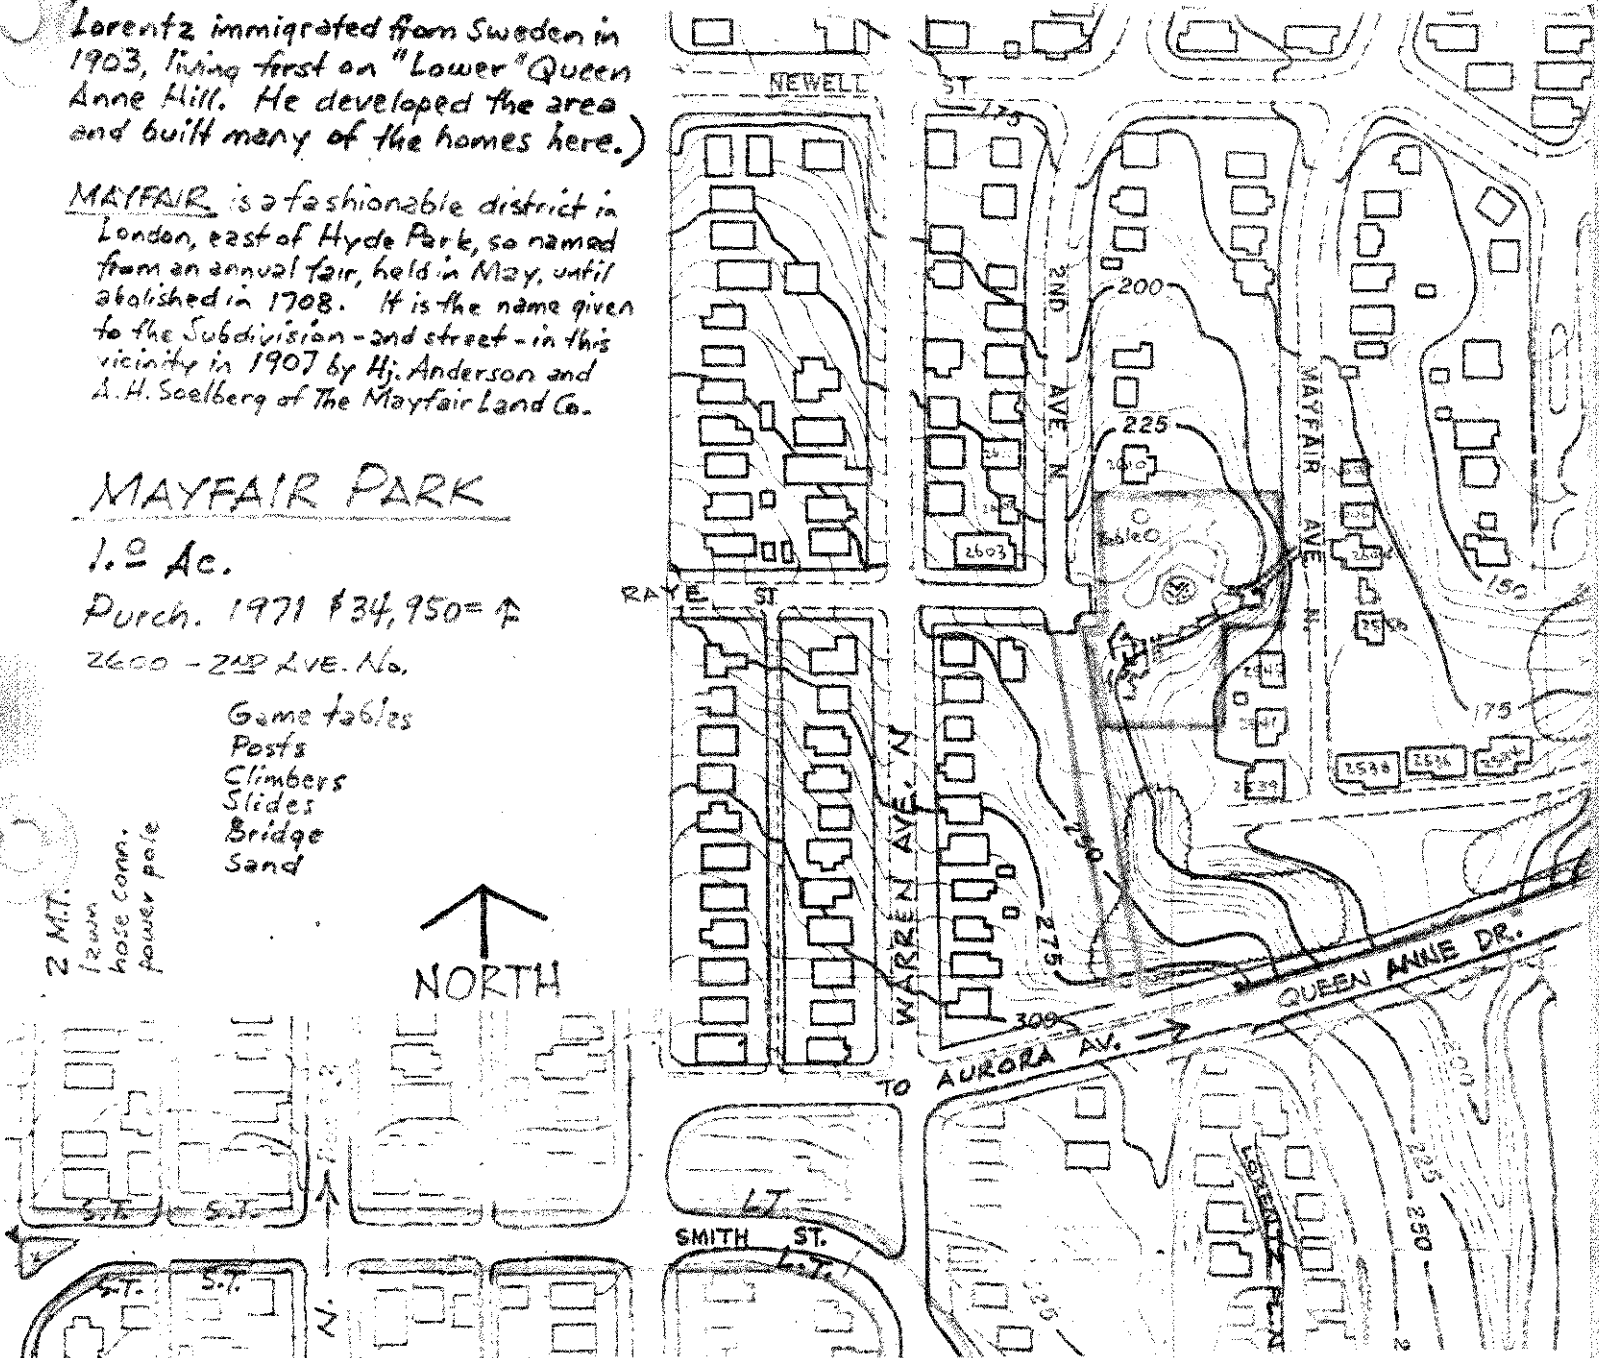 Lorentz immigrated from Sweden in
1903, living first on "Lower" Queen
Anne Hill. He developed the area
and built many of the homes here.)
MAYFAIR is a fashionable district in
London, east of Hyde Park, so named
from an annual fair, held in May, until
abolished in 1708. It is the name given
to the Subdivision - and street - in this
vicinity in 1907 by Hj. Anderson and
A. H. Soelberg of The Mayfair Land Co.
MAYFAIR PARK
1.0 Ac.
Purch. 1971 $34,950=
2600 - 2ND AVE. No.
Game tables
Posts
Climbers
Slides
Bridge
Sand
2 M.T.
lawn
hose conn.
power pole
NORTH
NEWELL ST.
175
2ND AVE. N.
200
225
MAYFAIR AVE N.
2610
2603
RAYE ST
150
175
2545
2541
2539
2538
2536
WARREN AVE. N
250
275
309
QUEEN ANNE DR.
TO AURORA AV.
LORENTZ PL. N
225
250
S.T. S.T.
L.T.
SMITH ST.
L.T.
S.T. S.T.
N.